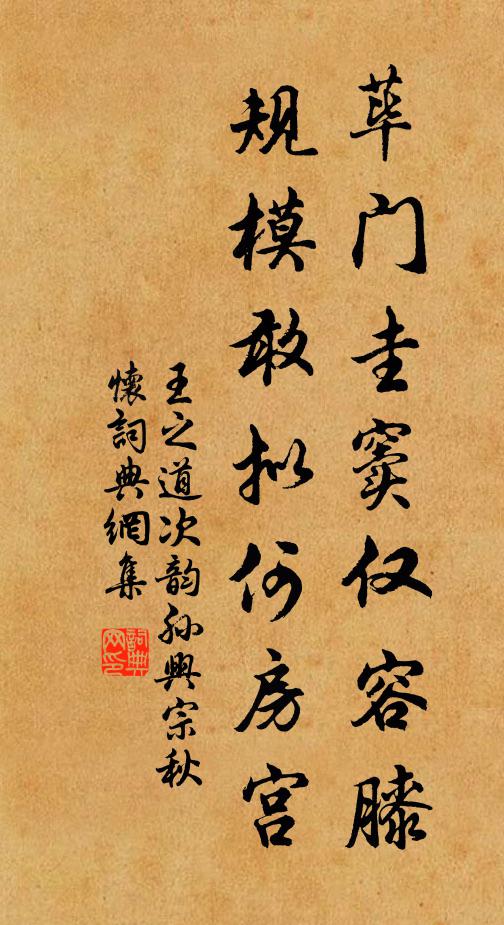 荜门圭窦仅容膝
规模敢拟何房宫
王之道次韵孙兴宗秋
懷詞典網集
詞典网印